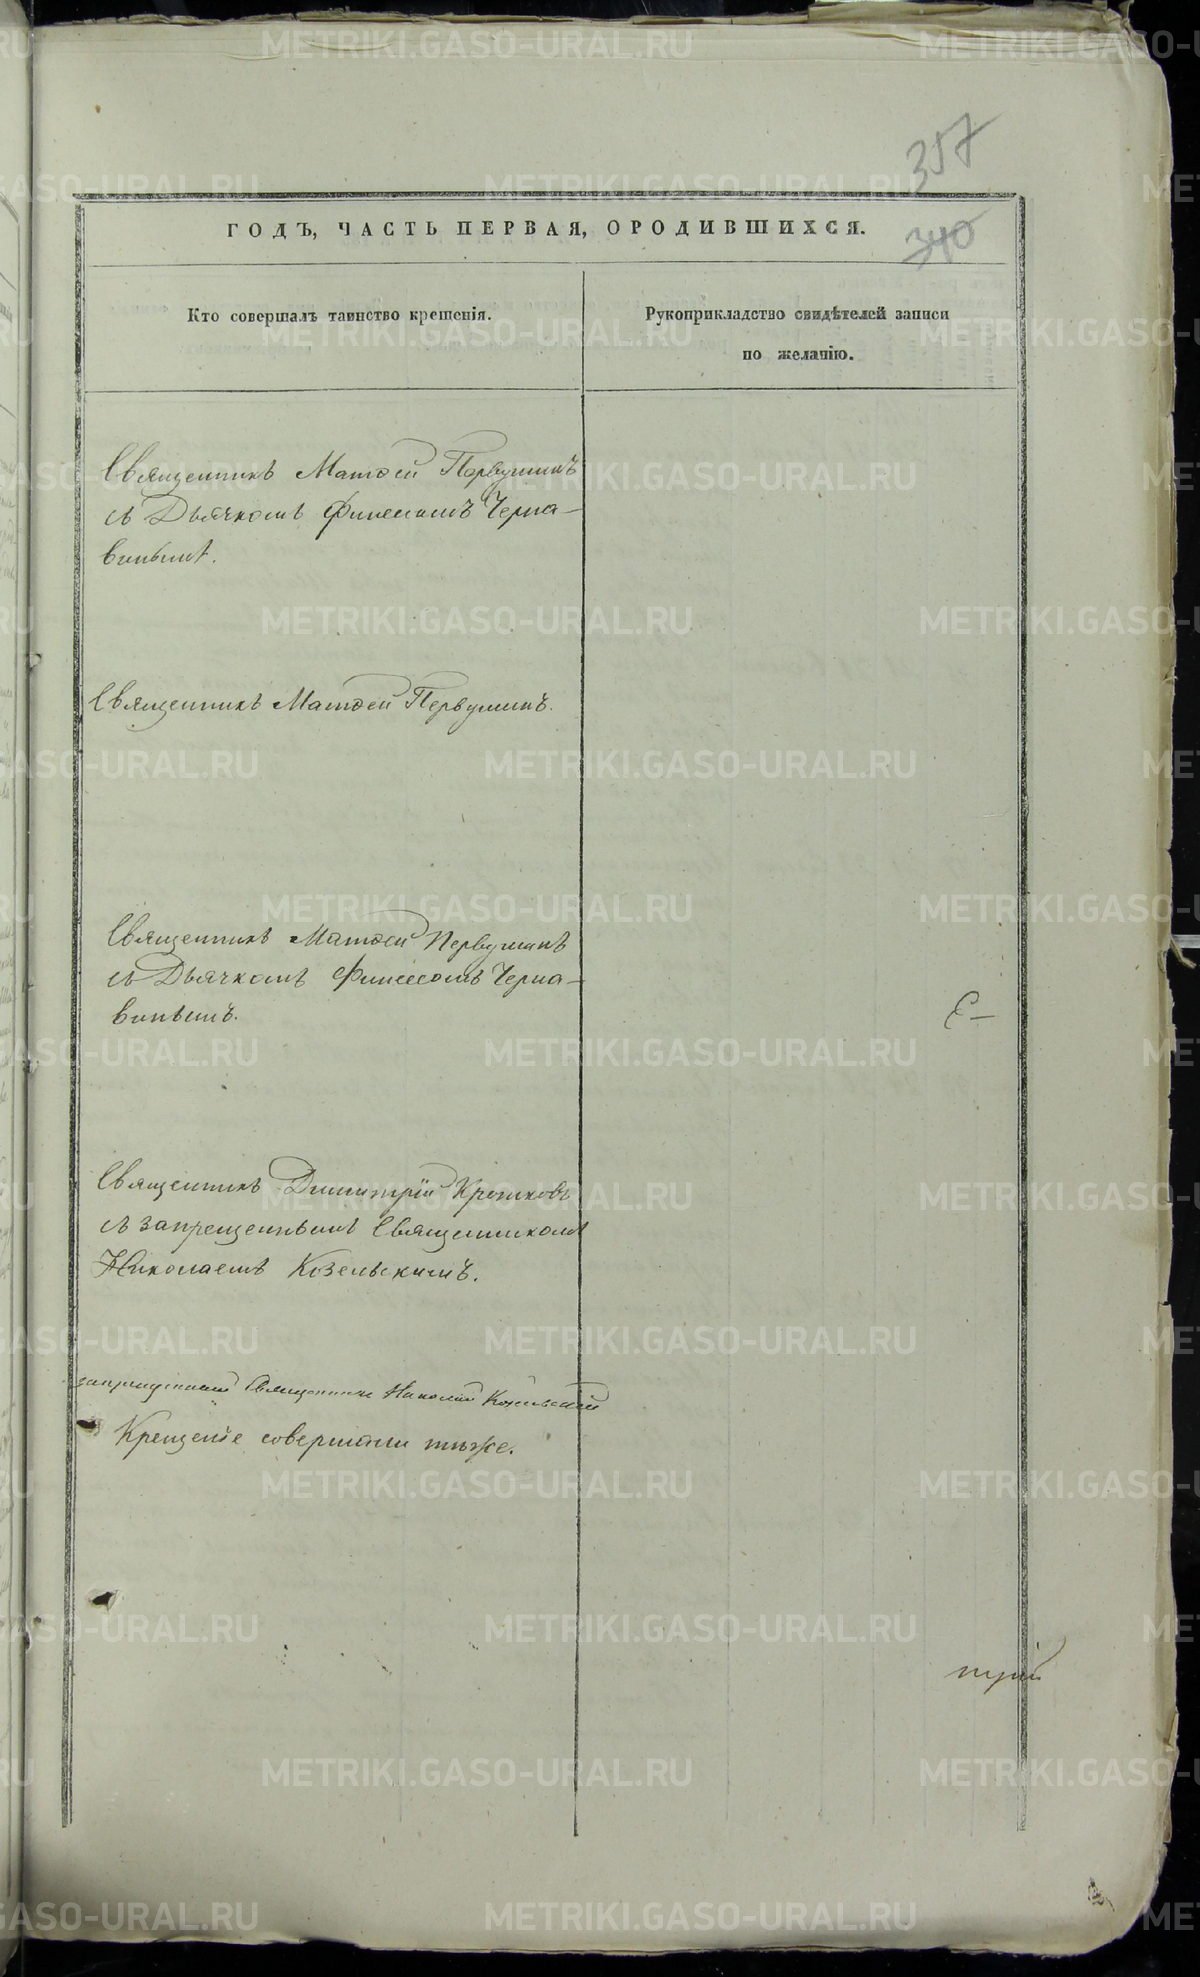 357
340
ГОДЪ, ЧАСТЬ ПЕРВАЯ, О РОДИВШИХСЯ.
Кто совершалъ таинство крещенія.
Рукоприкладство свидѣтелей записи
по желанію.
Священникъ Матѳей Первушинъ
съ Дьячкомъ Финеесомъ Черна-
виными.
Священникъ Матѳей Первушинъ.
Священникъ Матѳей Первушинъ
съ Дьячкомъ Финеесомъ Черна-
винымъ.
Священникъ Димитрій Кротковъ
съ запрещеннымъ Священникомъ
Николаемъ Козельскимъ.
запрещенный Священникъ Николай Козельскій
Крещеніе совершали тѣже.
METRIKI.GASO-URAL.RU